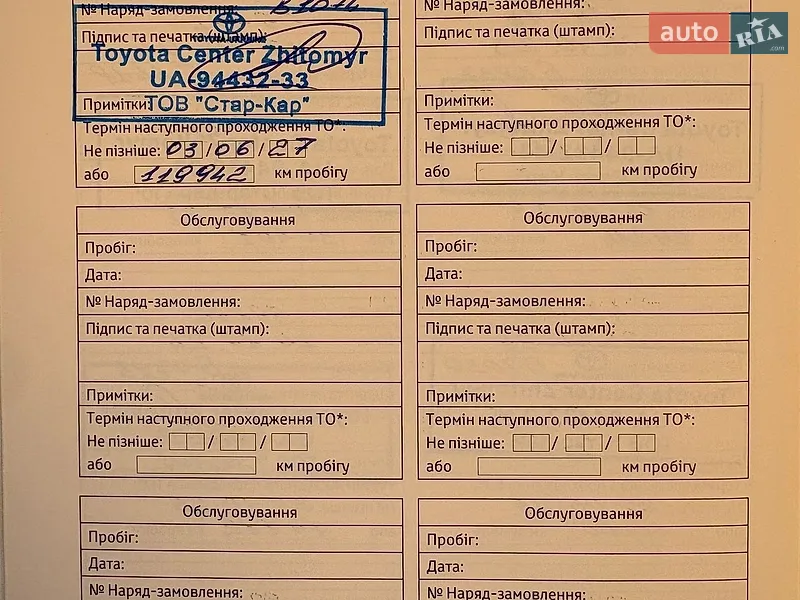 № Наряд-замовлення:
Підпис та печатка (штамп):
Toyota Center Zhitomyr
UA-94432-33
Примітки: ТОВ "Стар-Кар"
Термін наступного проходження ТО*:
Не пізніше: 03/06/27
або 119942 км пробігу
№ Наряд-замовлення:
Підпис та печатка (штамп):
Примітки:
Термін наступного проходження ТО*:
Не пізніше: / /
або км пробігу
autoRIA.com
Обслуговування
Пробіг:
Дата:
№ Наряд-замовлення:
Підпис та печатка (штамп):
Примітки:
Термін наступного проходження ТО*:
Не пізніше: / /
або км пробігу
Обслуговування
Пробіг:
Дата:
№ Наряд-замовлення:
Підпис та печатка (штамп):
Примітки:
Термін наступного проходження ТО*:
Не пізніше: / /
або км пробігу
Обслуговування
Пробіг:
Дата:
№ Наряд-замовлення:
Обслуговування
Пробіг:
Дата:
№ Наряд-замовлення: